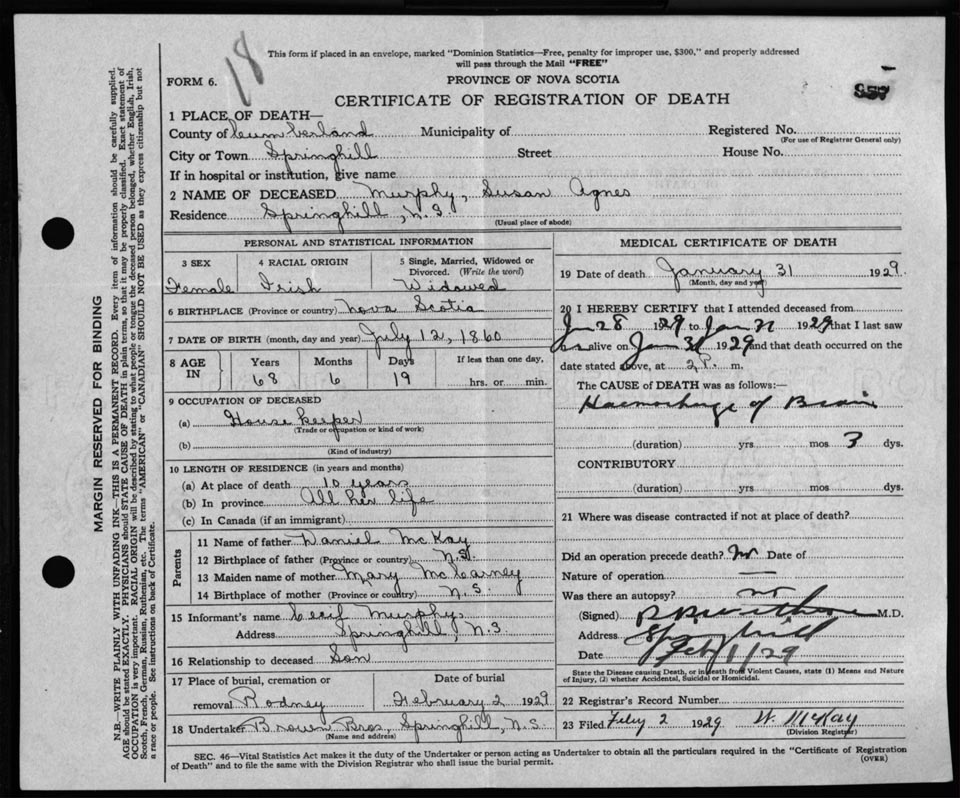 18
This form if placed in an envelope, marked "Dominion Statistics—Free, penalty for improper use, $300," and properly addressed
will pass through the Mail "FREE"
FORM 6.
PROVINCE OF NOVA SCOTIA
CERTIFICATE OF REGISTRATION OF DEATH
957
1 PLACE OF DEATH—
County of Cumberland Municipality of Registered No.
(For use of Registrar General only)
City or Town Springhill Street House No.
If in hospital or institution, give name
2 NAME OF DECEASED Murphy, Susan Agnes
Residence Springhill, N.S.
(Usual place of abode)
PERSONAL AND STATISTICAL INFORMATION
3 SEX 4 RACIAL ORIGIN 5 Single, Married, Widowed or
Divorced. (Write the word)
Female Irish Widowed
6 BIRTHPLACE (Province or country) Nova Scotia
7 DATE OF BIRTH (month, day and year) July 12, 1860
8 AGE IN Years Months Days If less than one day,
68 6 19 hrs. or min.
9 OCCUPATION OF DECEASED
(a) House keeper
(Trade or occupation or kind of work)
(b)
(Kind of industry)
10 LENGTH OF RESIDENCE (in years and months)
(a) At place of death 10 years
(b) In province All her life
(c) In Canada (if an immigrant)
Parents
11 Name of father Daniel McKay
12 Birthplace of father (Province or country) N.S.
13 Maiden name of mother Mary McCarney
14 Birthplace of mother (Province or country) N.S.
15 Informant's name Cecil Murphy
Address Springhill, N.S.
16 Relationship to deceased Son
17 Place of burial, cremation or Date of burial
removal Rodney February 2 1929
18 Undertaker Brown Bros, Springhill, N.S.
(Name and address)
MEDICAL CERTIFICATE OF DEATH
19 Date of death January 31 1929.
(Month, day and year)
20 I HEREBY CERTIFY that I attended deceased from
Jan 28 1929 to Jan 1929 that I last saw
alive on Jan 31 1929 and that death occurred on the
date stated above, at 2 P. m.
The CAUSE of DEATH was as follows:—
Haemorhage of Brain
(duration) yrs mos 3 dys.
CONTRIBUTORY
(duration) yrs. mos. dys.
21 Where was disease contracted if not at place of death?
Did an operation precede death? no Date of
Nature of operation —
Was there an autopsy? no
(Signed) M.D.
Address Springhill
Date Feb 1/29
State the Disease causing Death, or in death from Violent Causes, state (1) Means and Nature
of Injury, (2) whether Accidental, Suicidal or Homicidal.
22 Registrar's Record Number
23 Filed Feby 2 1929 W. McKay
(Division Registrar)
SEC. 46—Vital Statistics Act makes it the duty of the Undertaker or person acting as Undertaker to obtain all the particulars required in the "Certificate of Registration
of Death" and to file the same with the Division Registrar who shall issue the burial permit. (OVER)
MARGIN RESERVED FOR BINDING
N.B.—WRITE PLAINLY WITH UNFADING INK—THIS IS A PERMANENT RECORD. Every item of information should be carefully supplied.
AGE should be stated EXACTLY. PHYSICIANS should STATE CAUSE OF DEATH in plain terms, so that it may be properly classified. Exact statement of
OCCUPATION is very important. RACIAL ORIGIN will be described by stating to what people or tongue the deceased person belonged, whether English, Irish,
Scotch, French, German, Russian, Ruthenian, etc. The terms "AMERICAN" or "CANADIAN" SHOULD NOT BE USED as they express citizenship but not
a race or people. See instructions on back of Certificate.